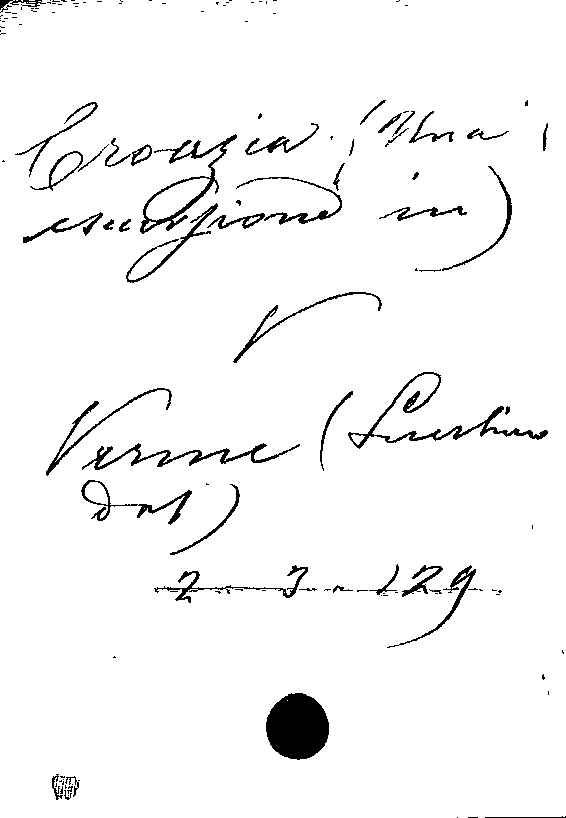 Croazia (Una
escursione in)
V
Verme (Luchino
dal)
2. 3. 129